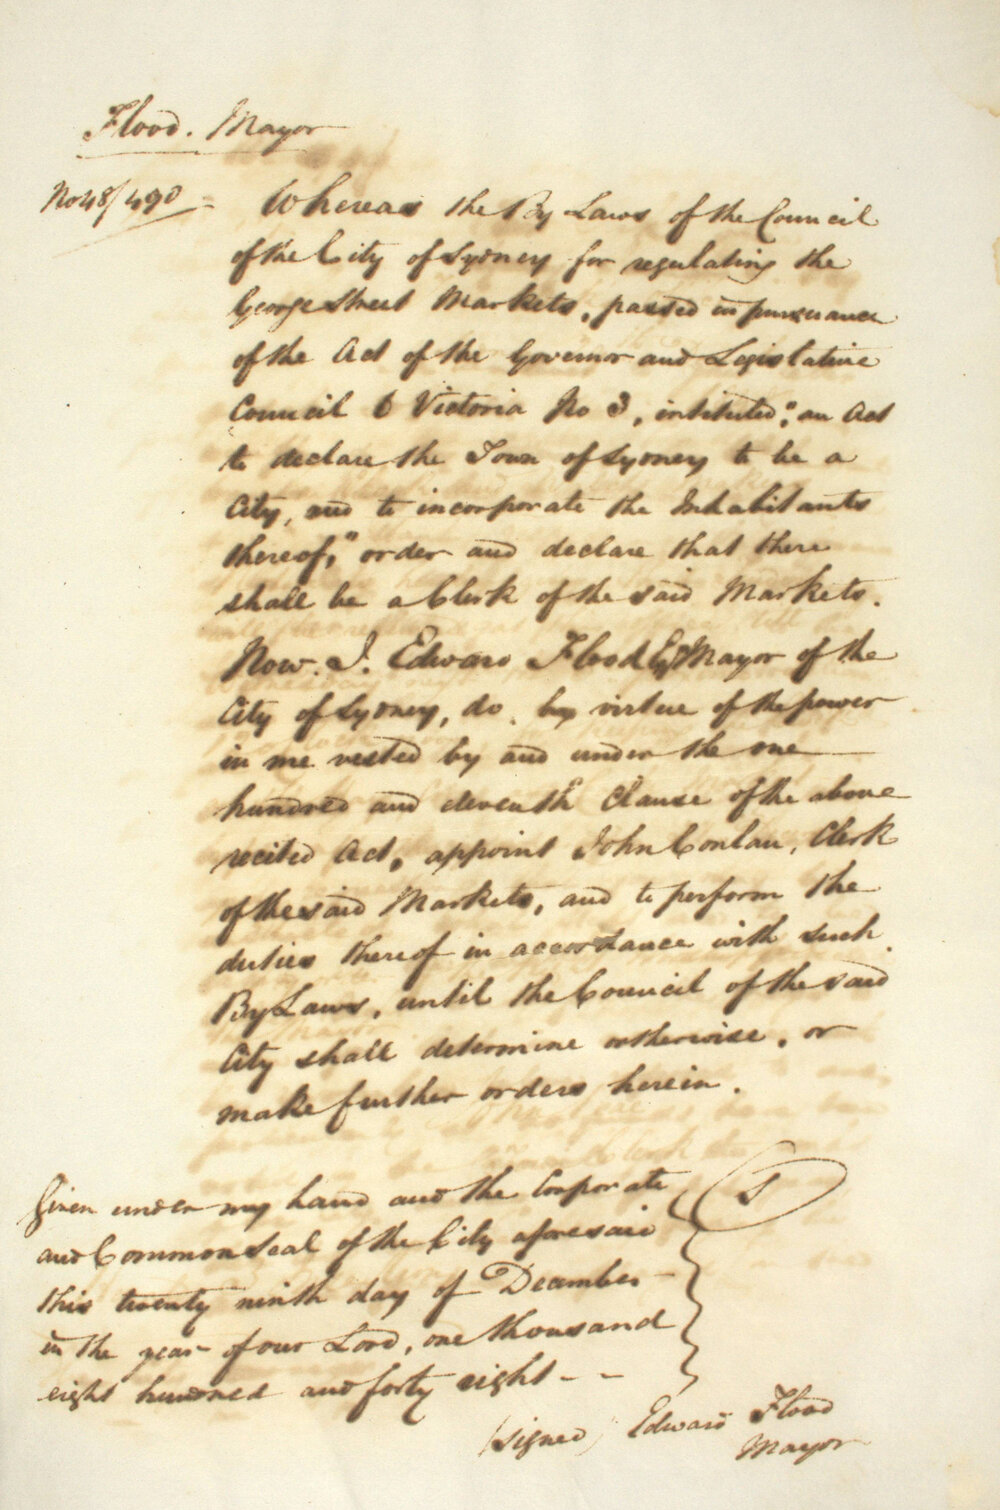 Flood. Mayor
No 48/490 - Whereas the By Laws of the Council
of the City of Sydney for regulating the
George Street Markets, passed in pursuance
of the Act of the Governor and Legislative
Council 6 Victoria No 3, intituled, "an Act
to declare the Town of Sydney to be a
City, and to incorporate the Inhabitants
thereof," order and declare that there
shall be a Clerk of the said Markets.
Now. I. Edward Flood Esqr Mayor of the
City of Sydney, do, by virtue of the power
in me vested by and under the one
hundred and eleventh Clause of the above
recited Act, appoint John Conlan, Clerk
of the said Markets, and to perform the
duties thereof in accordance with such
By Laws, until the Council of the said
City shall determine otherwise, or
make further orders herein.
Given under my hand and the Corporate
and Common Seal of the City aforesaid
this twenty ninth day of December -
in the year of our Lord, one thousand
eight hundred and forty eight - -
(signed) Edward Flood
Mayor